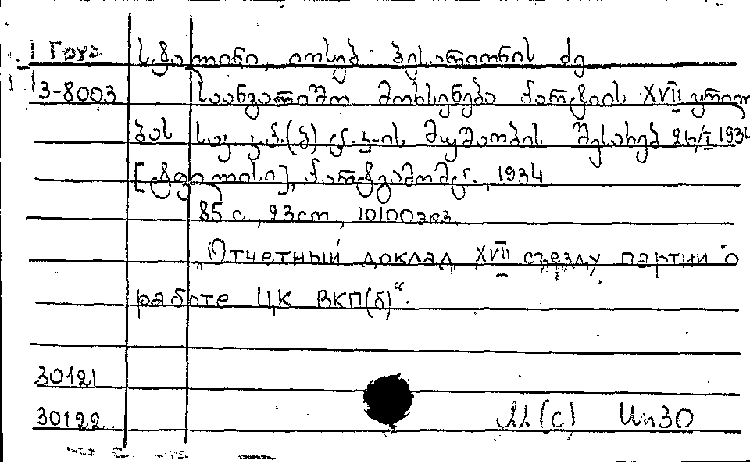 Груз
სტალინი, იოსებ ბესარიონის ძე
3-8003 საანგარიშო მოხსენება პარტიის XVII ყრილო
ბას საკ. კ.პ.(ბ) ც.კ-ის მუშაობის შესახებ 26/I 1934
[ტფილისი], პარტგამომც., 1934
85 с, 23cm, 10100экз.
„Отчетный доклад XVII съезду партии о
работе ЦК ВКП(б)“.
30121
30122 (с) Ин30